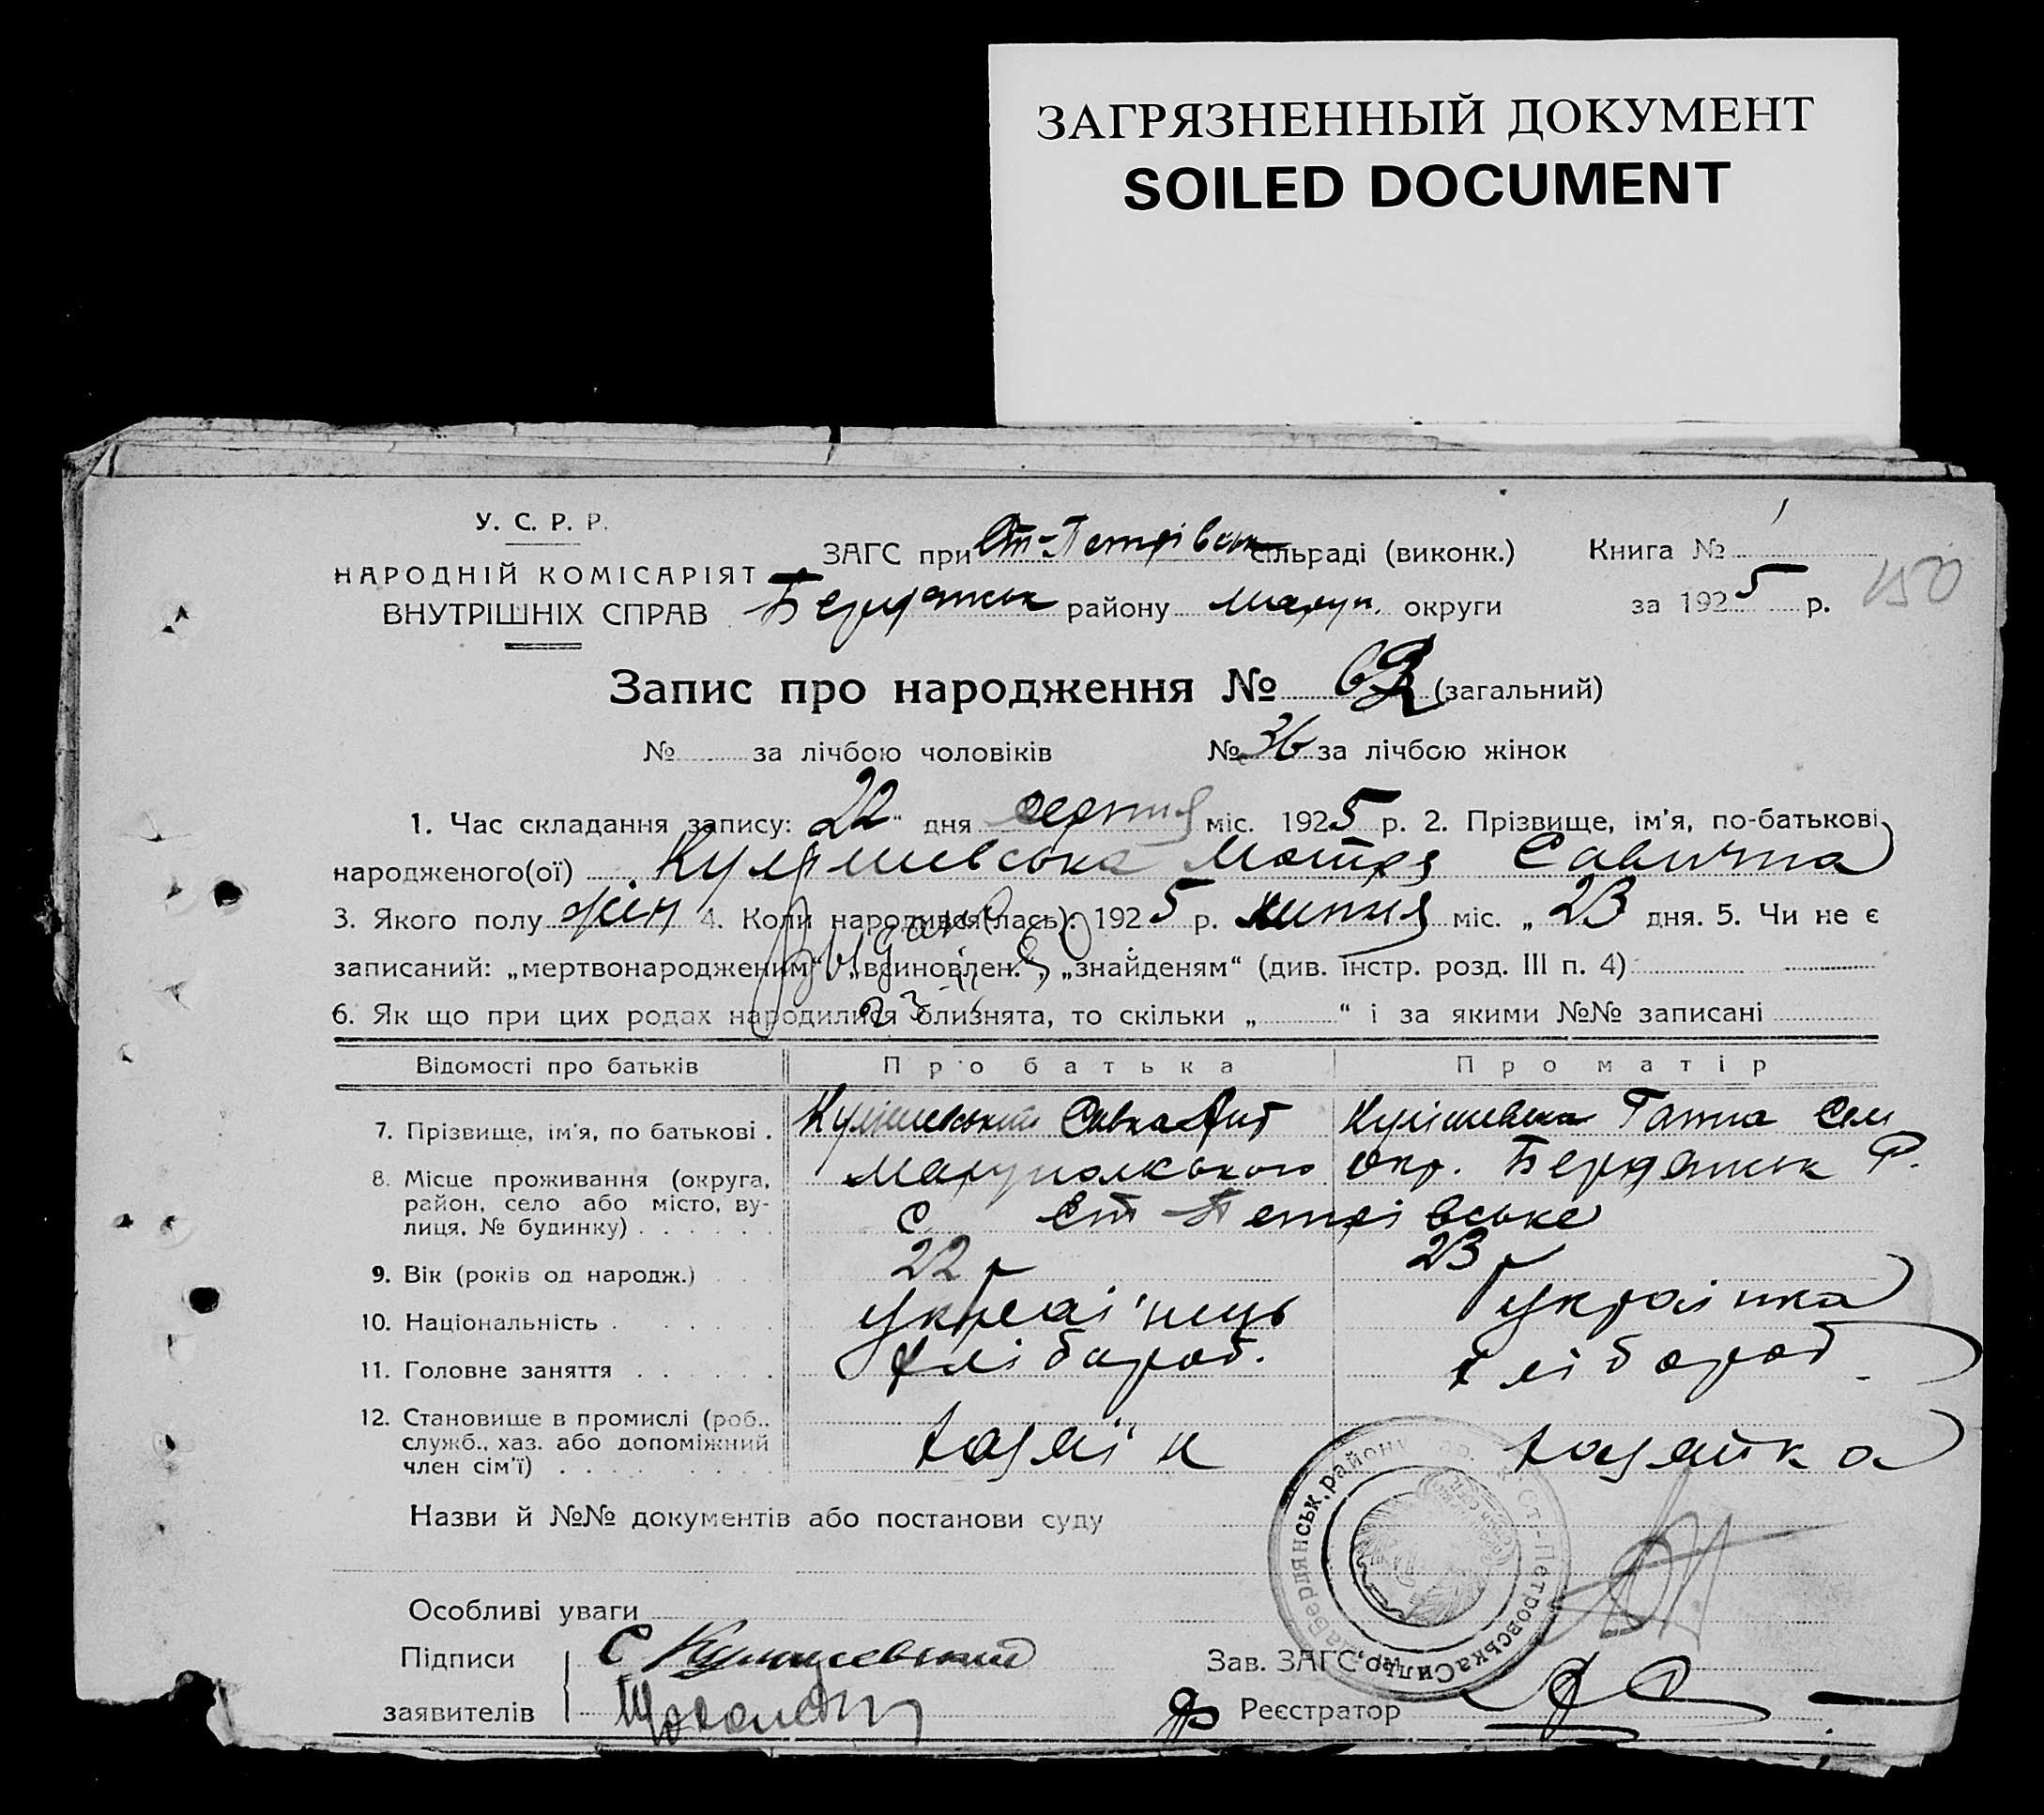 ЗАГРЯЗНЕННЫЙ ДОКУМЕНТ
SOILED DOCUMENT
У. С. Р. Р.
НАРОДНІЙ КОМІСАРІЯТ
ВНУТРІШНІХ СПРАВ
ЗАГС при Ст-Петрівськ сільраді (виконк.) Книга № 1
Бердянськ району Маріуп. округи за 1925 р. 150
Запис про народження № (загальний)
№ за лічбою чоловіків № 36 за лічбою жінок
1. Час складання запису: 22 " дня серпня міс. 1925 р. 2. Прізвище, ім'я, по-батькові
народженого(ої) Мотря Савична
3. Якого полу жін 4. Коли народився(лась): 1925 р. липня міс. „ 23 дня. 5. Чи не є
записаний: „мертвонародженим“ „всиновлен.“, „знайденям“ (див. інстр. розд. III п. 4)
6. Як що при цих родах народилися близнята, то скільки „ “ і за якими №№ записані
Відомості про батьків Про батька Про матір
7. Прізвище, ім'я, по батькові . Савка Ганна Сем
8. Місце проживання (округа, Маріупольського окр. Бердянськ Р.
район, село або місто, ву-
лиця, № будинку) . . . . . . с Ст Петрівське
9. Вік (років од народж.) 22 р 23 р
10. Національність . . . . . . українець українка
11. Головне заняття . . . . . . хлібороб. хлібороб
12. Становище в промислі (роб.,
служб., хаз. або допоміжний хазяїн хазяйка
член сім'ї) . . . . . . . .
Назви й №№ документів або постанови суду
Особливі уваги
Підписи С
заявителів
Зав. ЗАГС'ом
Реєстратор
Ст.-Петровська Сильрада Бердянськ. району